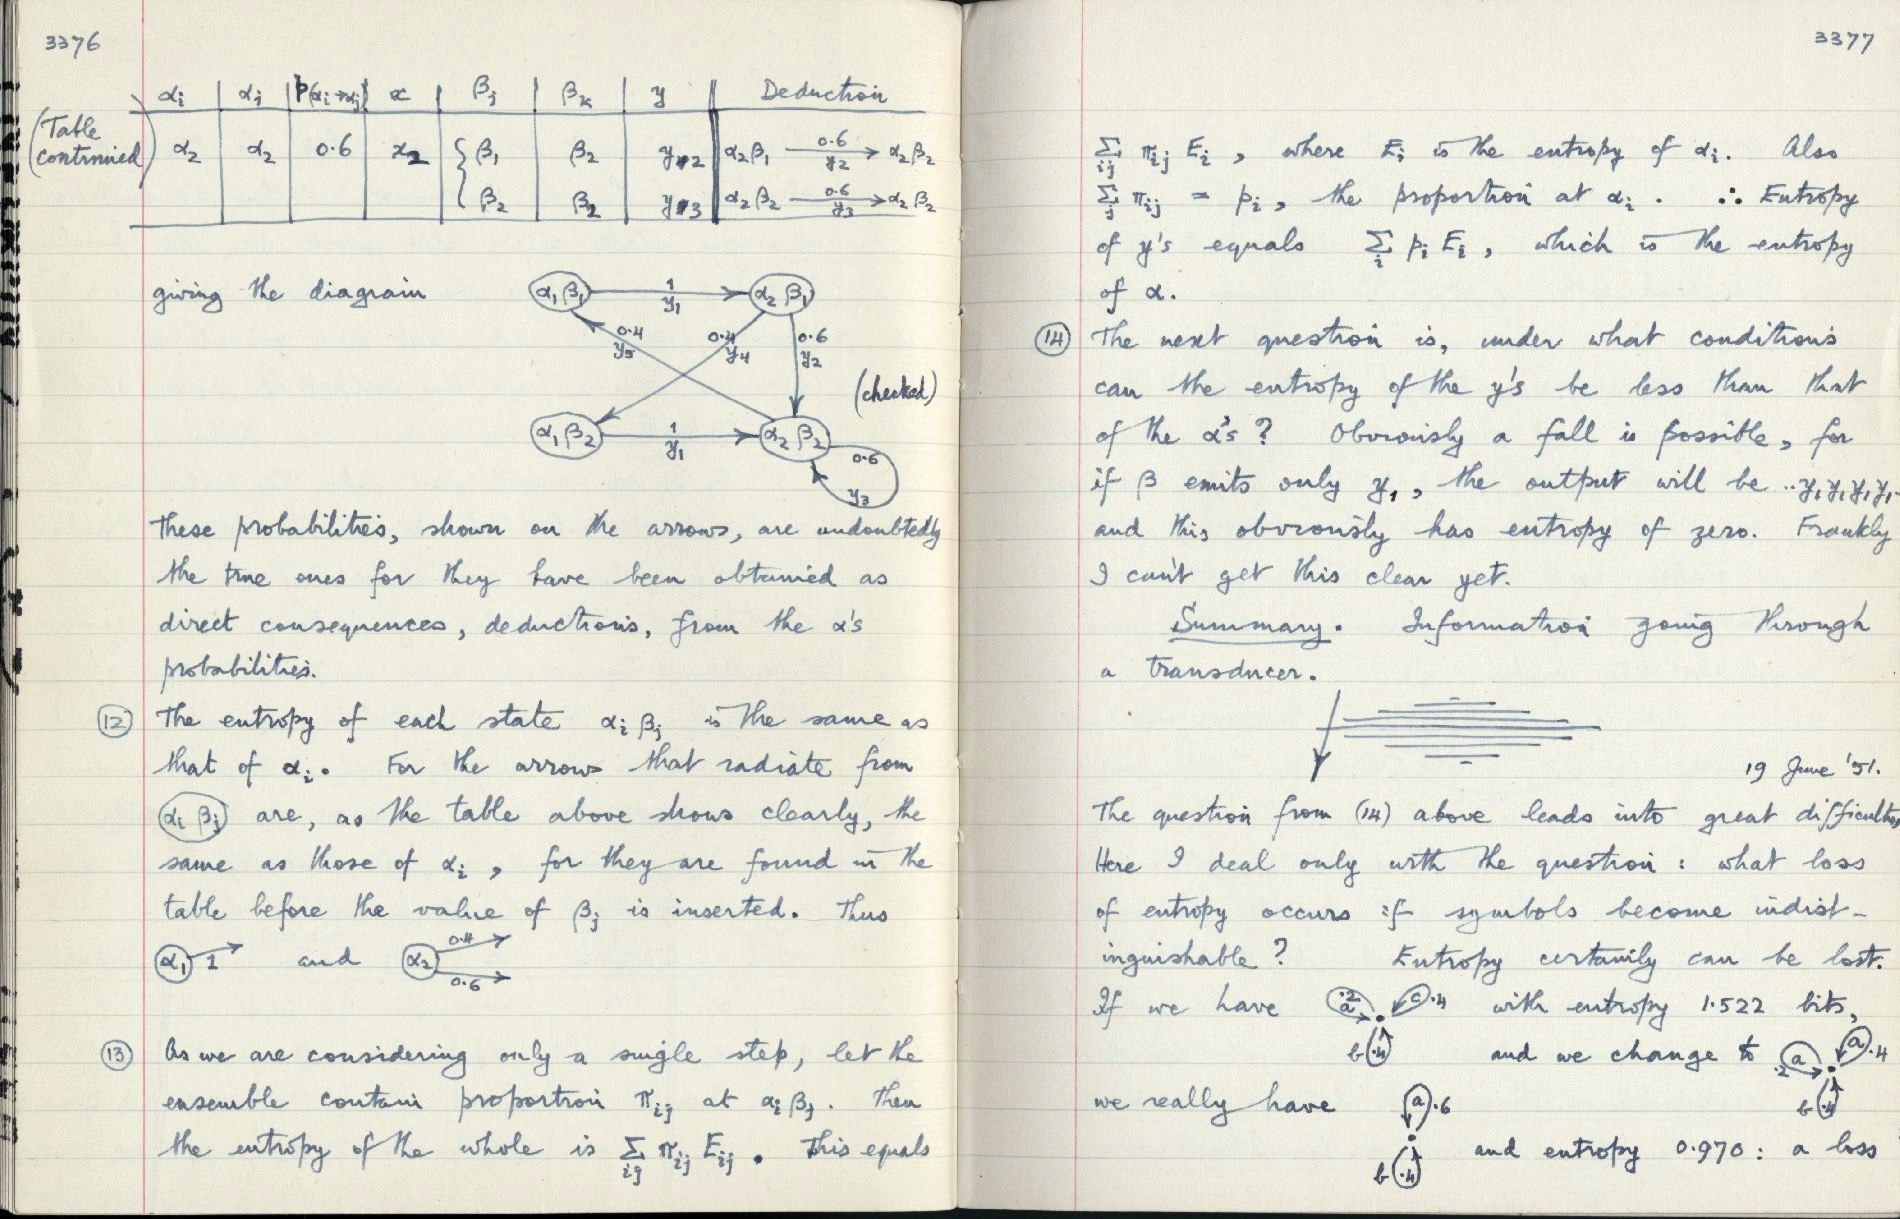 3376
αi αj p(αi→αj) x βj βk y Deduction
(Table continued) α2 α2 0.6 x2 { β1 β2 y2 α2β1 0.6 y2 → α2β2
β2 β2 y3 α2β2 0.6 y3 → α2β2
giving the diagram
α1β1 1 y1 α2β1
0.4 y5 0.4 y4 0.6 y2
(checked)
α1β2 1 y1 α2β2 0.6 y3
These probabilities, shown on the arrows, are undoubtedly
the true ones for they have been obtained as
direct consequences, deductions, from the α's
probabilities.
(12) The entropy of each state αi βj is the same as
that of αi. For the arrows that radiate from
(αi βj) are, as the table above shows clearly, the
same as those of αi, for they are found in the
table before the value of βj is inserted. Thus
α1 1 and α2 0.4 0.6
(13) As we are considering only a single step, let the
ensemble contain proportion πij at αi βj. Then
the entropy of the whole is Σij πij Eij. This equals
3377
Σij πij Ei, where Ei is the entropy of αi. Also
Σj πij = pi, the proportion at αi. ∴ Entropy
of y's equals Σi pi Ei, which is the entropy
of α.
(14) The next question is, under what conditions
can the entropy of the y's be less than that
of the α's? Obviously a fall is possible, for
if β emits only y1, the output will be ..y1y1y1y1..
and this obviously has entropy of zero. Frankly
I can't get this clear yet.
Summary. Information going through
a transducer.
19 June '51.
The question from (14) above leads into great difficulties
Here I deal only with the question: what loss
of entropy occurs if symbols become indist-
inguishable? Entropy certainly can be lost.
If we have .2 a c .4 b .4 with entropy 1.522 bits,
and we change to a .2 a .4 b .4
we really have a .6
b .4 and entropy 0.970: a loss